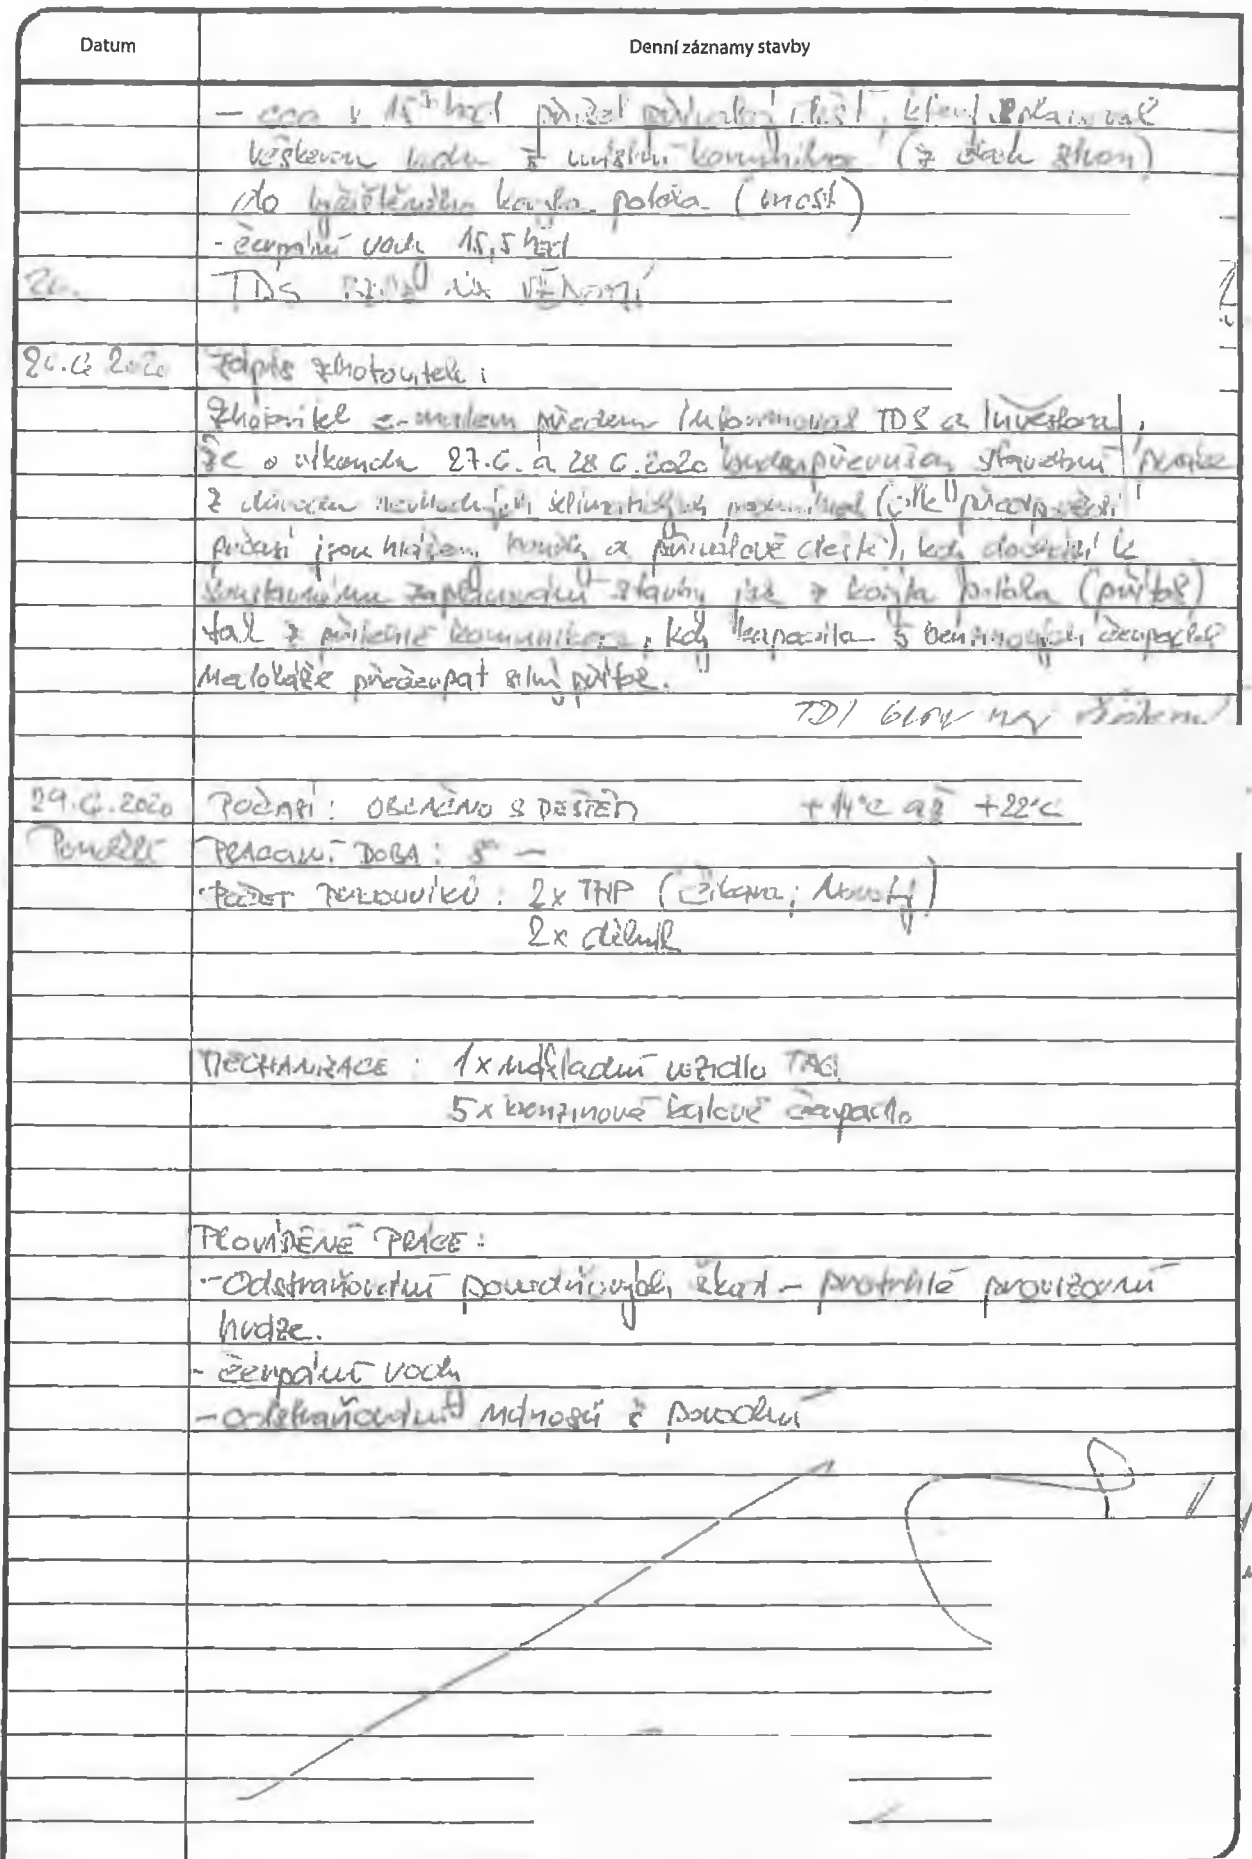 Datum Denní záznamy stavby
- cca v 15 hod přišel přívalový déšť, který splavoval
veškerou vodu z místní komunikace (z obou stran)
do koryta potoka (most)
- čerpání vody 15,5 hod
26. TDS VĚDOMÍ
26.6.2020 Zápis zhotovitele:
Zhotovitel e-mailem předem informoval TDS a investora,
že o víkendu 27.6. a 28.6.2020 budou přerušeny stavební práce
z důvodu nevhodných klimatických podmínek (dle předpovědi
počasí jsou hlášeny bouřky a přívalové deště), kdy dochází k
konstantnímu zaplavování stavby jak z koryta potoka (přítok)
tak z přilehlé komunikace, kdy kapacita 5 benzinových čerpadel
nedokáže přečerpat silný přítok.
TDI
29.6.2020 POČASÍ: OBLAČNO S DEŠTĚM +14°C až +22°C
Pondělí PRACOVNÍ DOBA:
POČET PRACOVNÍKŮ: 2x THP
2x dělník
MECHANIZACE: 1x nákladní vozidlo
5x benzinové kalové čerpadlo
PROVÁDĚNÉ PRÁCE:
- Odstraňování povodňových škod - protrhlé provizorní
hrdze.
- čerpání vody
- odstraňování nánosů z povodní